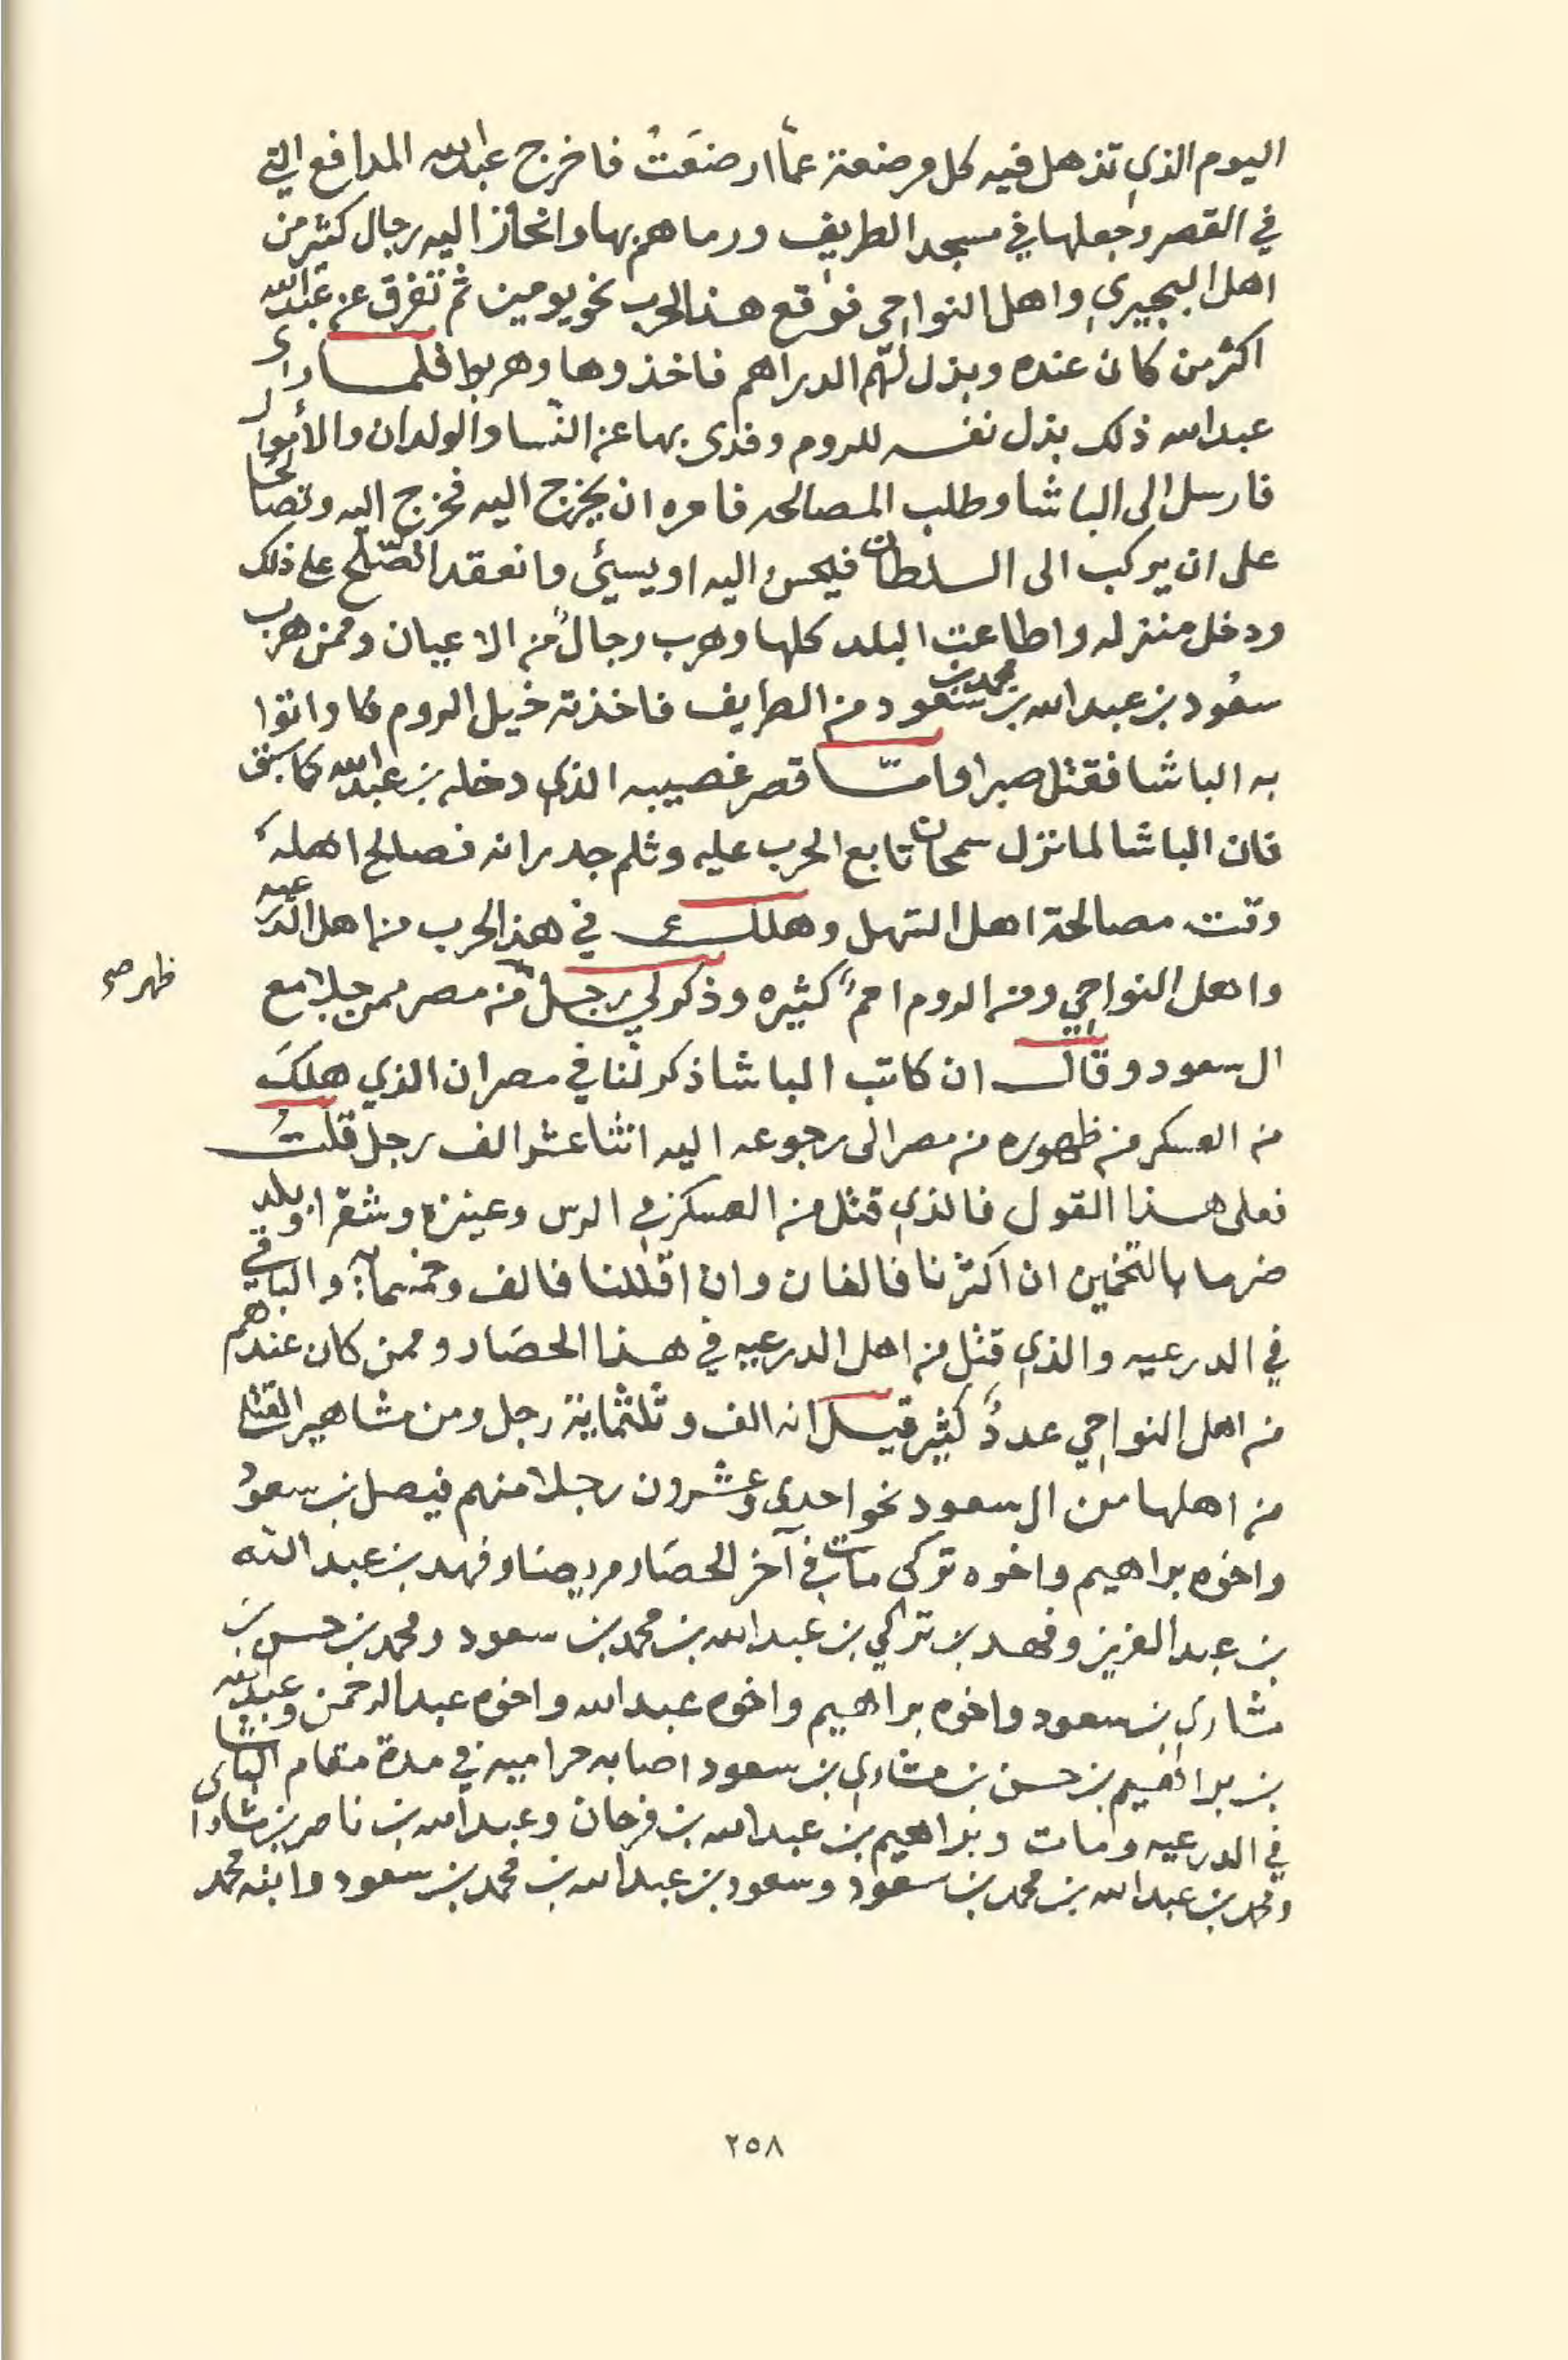 اليوم الذي تذهل فيه كل مرضعة عما ارضعت فاخرج عبدالله المدافع التي
في القصر وجعلها في مسجد الطريف ورماهم بها وانحاز اليه رجال كثير من
اهل البجيري واهل النواحي فوقع هذا الحرب نحو يومين ثم تفرق عن عبدالله
اكثر من كان عنده وبذل لهم الدراهم فاخذوها وهربوا فلما راى
عبدالله ذلك بذل نفسه للروم وفدى بها عن النسا والولدان والأموال
فارسل الى الباشا وطلب المصالحه فامره ان يخرج اليه فخرج اليه وتصالحا
على ان يركب الى السلطان فيحسن اليه او يسيئ وانعقد الصلح على ذلك
ودخل منزله واطاعت البلد كلها وهرب رجالٌ من الاعيان وممن هرب
سعود بن عبدالله بن محمد بن سعود من الطريف فاخذته خيل الروم فاواتوا
به الباشا فقتل صبرا واما قصر غصيبه الذي دخله بن عبدالله كما سبق
فان الباشا لما نزل سمحان تابع الحرب عليه وثلم جدرانه فصالح اهله
وقت مصالحة اهل السهل وهلك في هذا الحرب من اهل الدرعيه
واهل النواحي ومن الروم اممٌ كثيره وذكر لي رجل من مصر ممن جلا مع
ال سعود وقال ان كاتب الباشا ذكر لنا في مصر ان الذي هلك
من العسكر من ظهوره من مصر الى رجوعه اليه اثنا عشر الف رجل قلت
فعلى هذا القول فالذي قتل من العسكر في الرس وعنيزه وشقرا وبلد
ضرما بالتخمين ان اكثرنا فالفان وان اقللنا فالف وخمسمايه والباقي
في الدرعيه والذي قتل من اهل الدرعيه في هذا الحصار وممن كان عندهم
من اهل النواحي عددٌ كثير قيل انه الف وثلثماية رجل ومن مشاهير القتلى
من اهلها من ال سعود نحو احدى وعشرون رجلا منهم فيصل بن سعود
واخوه براهيم واخوه تركي مات في آخر الحصار مريضا وفهد بن عبدالله
بن عبدالعزيز وفهد بن تركي بن عبدالله بن محمد بن سعود ومحمد بن حسن بن
مشاري بن سعود واخوه براهيم واخوه عبدالله واخوه عبدالرحمن وعبدالله
بن براهيم بن حسن بن مشاري بن سعود اصابه حراميه في مدة مقام الباشا
في الدرعيه ومات وبراهيم بن عبدالله بن فرحان وعبدالله بن ناصر بن مشاري
ومحمد بن عبدالله بن محمد بن سعود وسعود بن عبدالله بن محمد بن سعود وابنه محمد
ظهر صح
٢٥٨